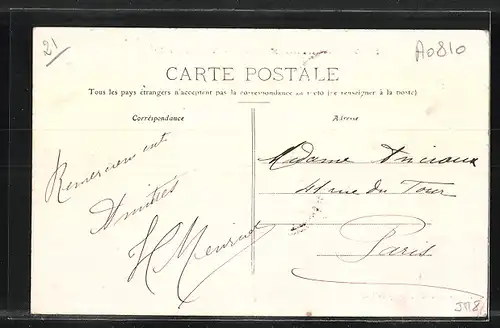 21
A0810
CARTE POSTALE
Tous les pays étrangers n'acceptent pas la correspondance au recto (se renseigner à la poste)
Correspondance
Adresse
Remerciements
Amitiés
H
Madame
41 rue du Tour
Paris